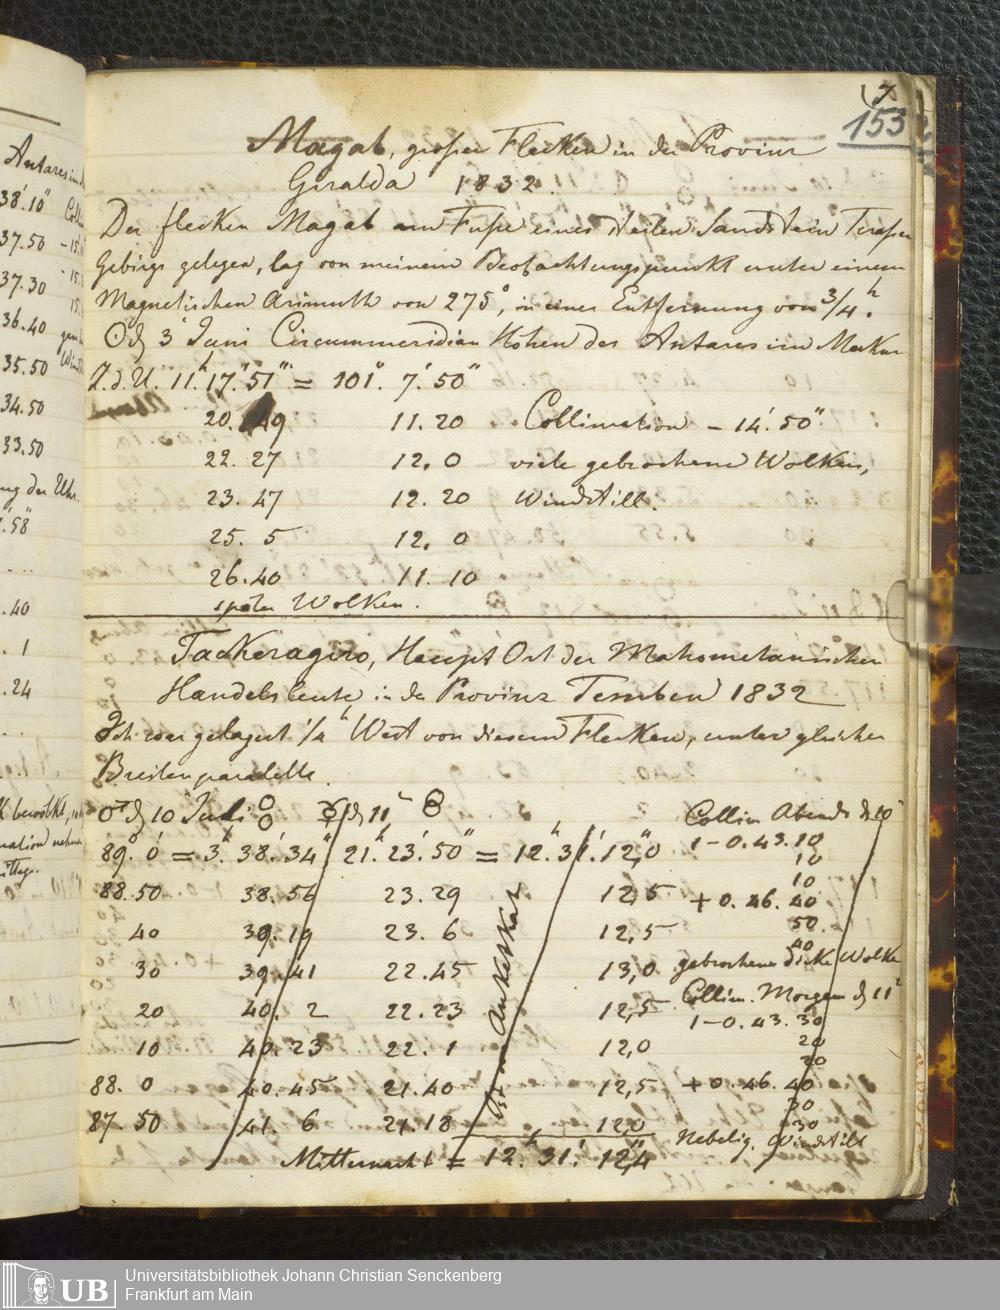 153
Magab, großer Flecken in der Provinz
Geralda 1832
Der flecken Magab am Fuße eines steilen Sandstein Terassen
Gebirgs gelegen, lag von meinem Beobachtungspunkt unter einem
Magnetischen Azimuth von 275°, in einer Entfernung von 3/4 h.
3 Juni Circummeridian Höhen des Antares im Merkur
Z. d. U. 11h 17' 51" = 101° 7' 50"
20. 49 11. 20 Collimation - 14' 50"
22. 27 12. 0 viele gebrochene Wolken,
23. 47 12. 20 Windstill.
25. 5 12. 0
26. 40 11. 10
später Wolken.
Tackeragiro, Haupt Ort der Mahometanischen
Handelsleute in der Provinz Temben 1832
Ich war gelagert 1/4 h West von diesem Flecken, unter gleicher
Breitenparallele.
♂ d 10 Juli ☿ d 11 Collim Abends d 10
89° 0' = 3h 38' 34" 21h 23' 50" = 12h 31' 12,0" 1-0. 43. 10
10
88. 50 38. 56 23. 29 12,5 10
+ 0. 46. 40
40 39. 19 23. 6 12,5 50
40
30 39. 41 22. 45 13,0 gebrochene dicke Wolken
20 40. 2 22. 23 12,5 Collim. Morgen d 11
1-0. 43. 30
10 40. 23 22. 1 12,0 20
20
88. 0 40. 45 21. 40 12,5 + 0. 46. 40
30
87. 50 41. 6 21. 18 12,0 30
Nebelig, Windstill
Mitternacht = 12h 31' 12,4"
Antares
38' 10"
37. 50 - 15.
37. 30
36. 40
35. 50
34. 50
33. 50
der Uhr.
58"
. 40
. 1
. 24
UB
Universitätsbibliothek Johann Christian Senckenberg
Frankfurt am Main